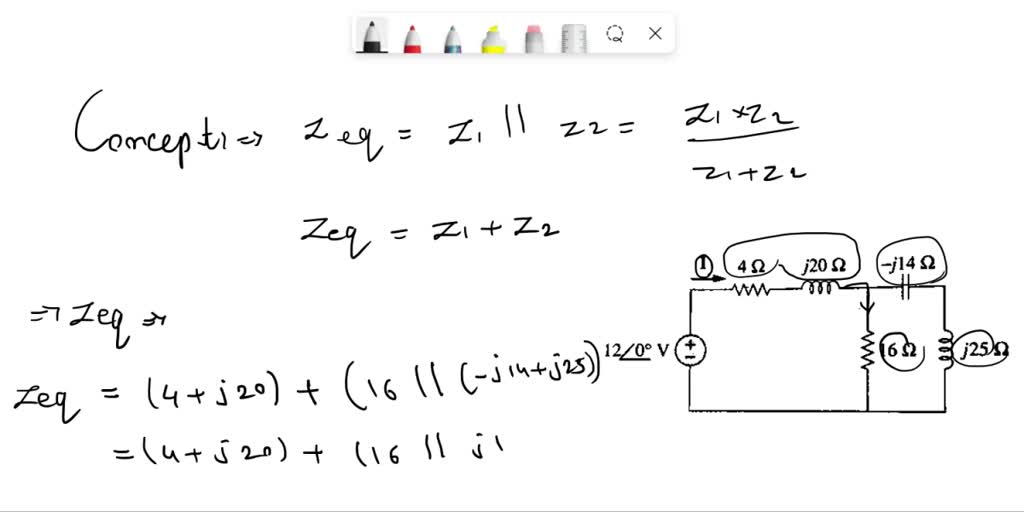 Concept:⇒ Zeq = Z1 || Z2 = Z1 × Z2 / Z1 + Z2
Zeq = Z1 + Z2
⇒ Zeq ⇒
Zeq = (4+j20) + (16 || (-j14+j25))
= (4+j20) + (16 || j1
I 4 Ω j20 Ω -j14 Ω
12/0° V 16 Ω j25 Ω